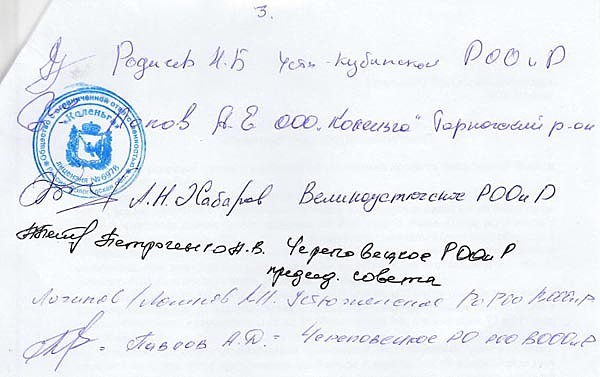 3.
Родичев Н.Б Усть-Кубинское РООиР
Попов А.Е ООО „Коленьга" Тарногский р-он
Общество с ограниченной ответственностью
"Коленьга"
лицензия № 6976
А.Н. Хабаров Великоустюгское РООиР
Петроченко Н.В. Череповецкое РООиР
председ. совета
Логинов Устюженское РО РОО ВООиР
Павлов А.Д. = Череповецкое РО РОО ВООиР